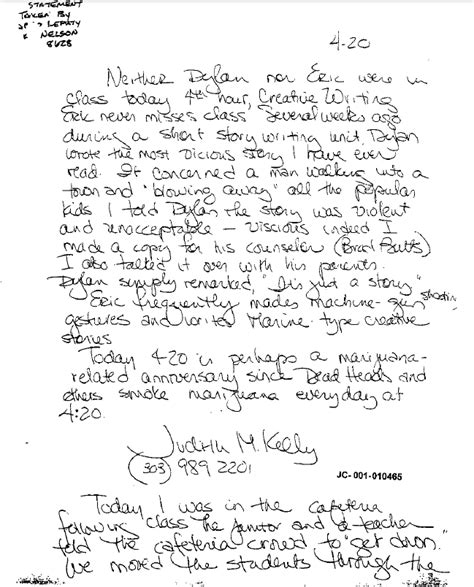 STATEMENT
TAKEN BY
DEPUTY
NELSON
4-20
Neither Dylan nor Eric were in
class today 4th hour, Creative Writing
Eric never misses class Several weeks ago
during a short story writing unit, Dylan
wrote the most vicious story I have ever
read. It concerned a man walking into a
town and "blowing away" all the popular
kids I told Dylan the story was violent
and unacceptable — viscious indeed I
made a copy for his counselor (Brad Butts)
I also talked it over with his parents.
Dylan simply remarked, "It's just a story"
Eric frequently makes machine-gun shooting
gestures and writes Marine-type creative
stories
Today 4-20 is perhaps a marijuana-
related anniversary since Dead Heads and
others smoke marijuana everyday at
4:20.
Judith M. Kelly
(303) 989 2201
JC-001-010465
Today I was in the cafeteria
following class The janitor and a teacher
told the cafeteria crowd to "get down.
We moved the students through the